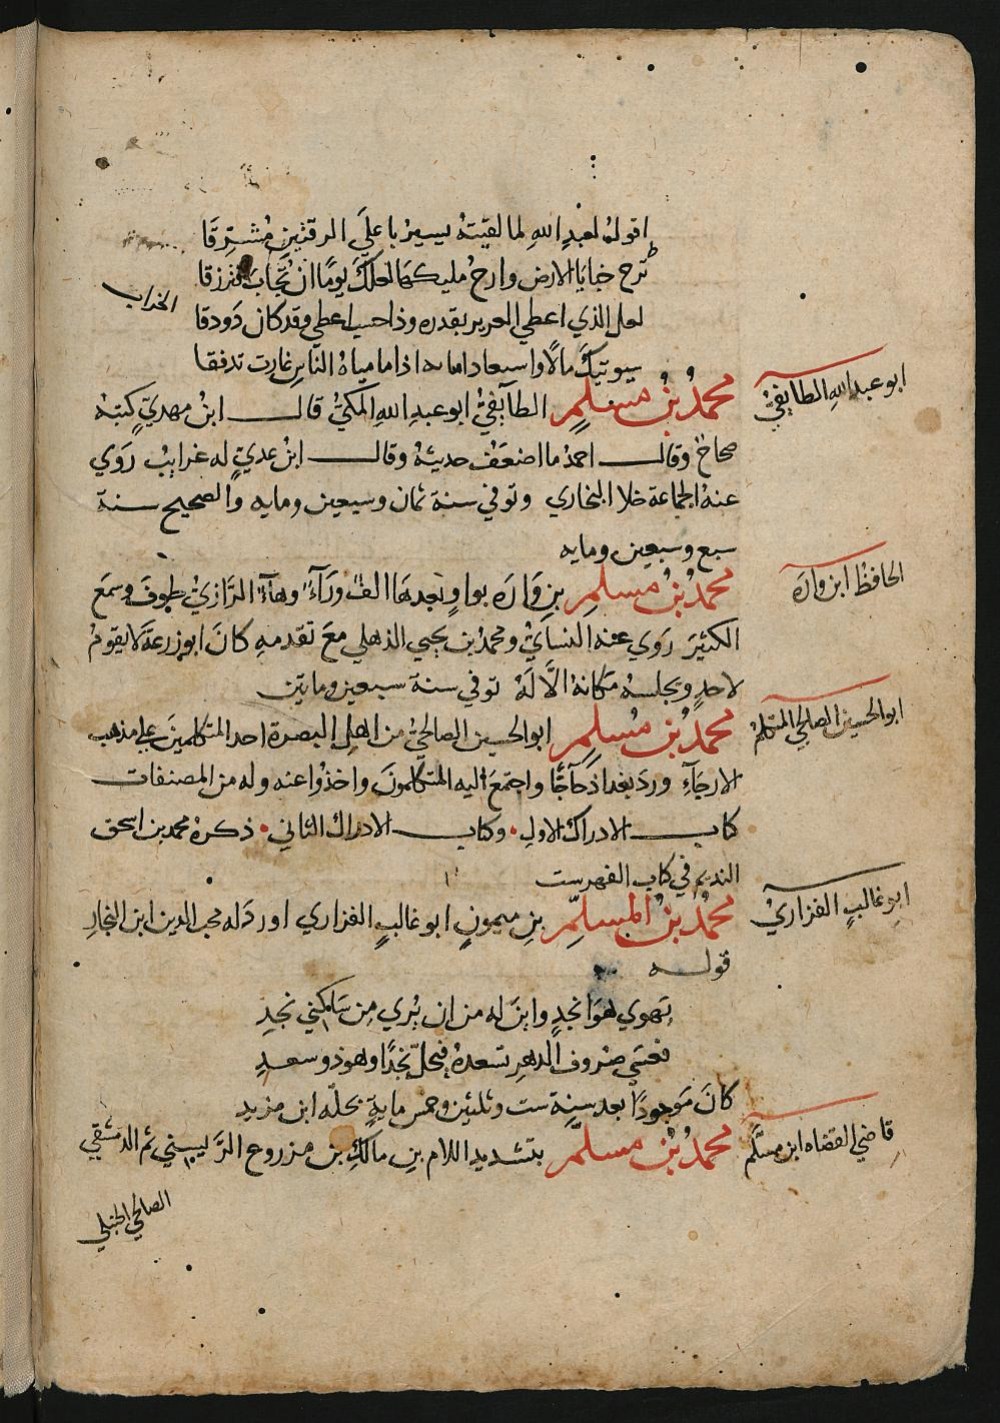 اقول لعبد الله لما لقيته يسير باعلي الرقتين مشرقا
ترج خبايا الارض وارج مليكها لعلك يوما ان تجاب فترزقا
لعل الذي اعطي العزيز بقدره وذا خشب اعطي وقد كان دودقا
سيوتيك مالا واسعا ذا مثابة اذا ما مياه الناس غارت تدفقا
ابو عبد الله الطايفي
محمد بن مسلم الطايفي ابو عبد الله المكي قال ابن مهدي كتبه
صحاح وقال احمد ما اضعف حديثه وقال ابن عدي له غرايب روي
عنه الجماعة خلا البخاري وتوفي سنة ثمان وسبعين ومايه والصحيح سنة
سبع وسبعين ومايه
الحافظ ابن وارة
محمد بن مسلم بن وارة بواو وبعدها الف وراء وهاء الرازي طوف وسمع
الكثير روي عنه النسائي ومحمد بن يحيي الذهلي مع تقدمه كان ابو زرعة لا يقوم
لاحد ويجلسه مكانه الا له توفي سنة سبعين ومايتين
ابو الحسين الصالحي المتكلم
محمد بن مسلم ابو الحسين الصالحي من اهل البصرة احد المتكلمين علي مذهب
الارجاء ورد بغداذ حاجا واجتمع اليه المتكلمون واخذوا عنه وله من المصنفات
كتاب الادراك الاول وكتاب الادراك الثاني ذكره محمد بن اسحق
النديم في كتاب الفهرست
ابو غالب الفزاري
محمد بن المسلم بن ميمون ابو غالب الفزاري اورد له محب الدين ابن النجار
قوله
يهوي هوا نجد واين له من ان يري من ساكني نجد
فعسي صروف الدهر تسعده فيحل نجدا وهو ذو سعد
كان موجودا بعد سنة ست وثلثين وخمس ماية بحلة ابن مزيد
قاضي القضاه ابن مسلم
محمد بن مسلم بتشديد اللام بن مالك بن مزروع الزيني ثم الدمشقي
الصالحي الحنبلي